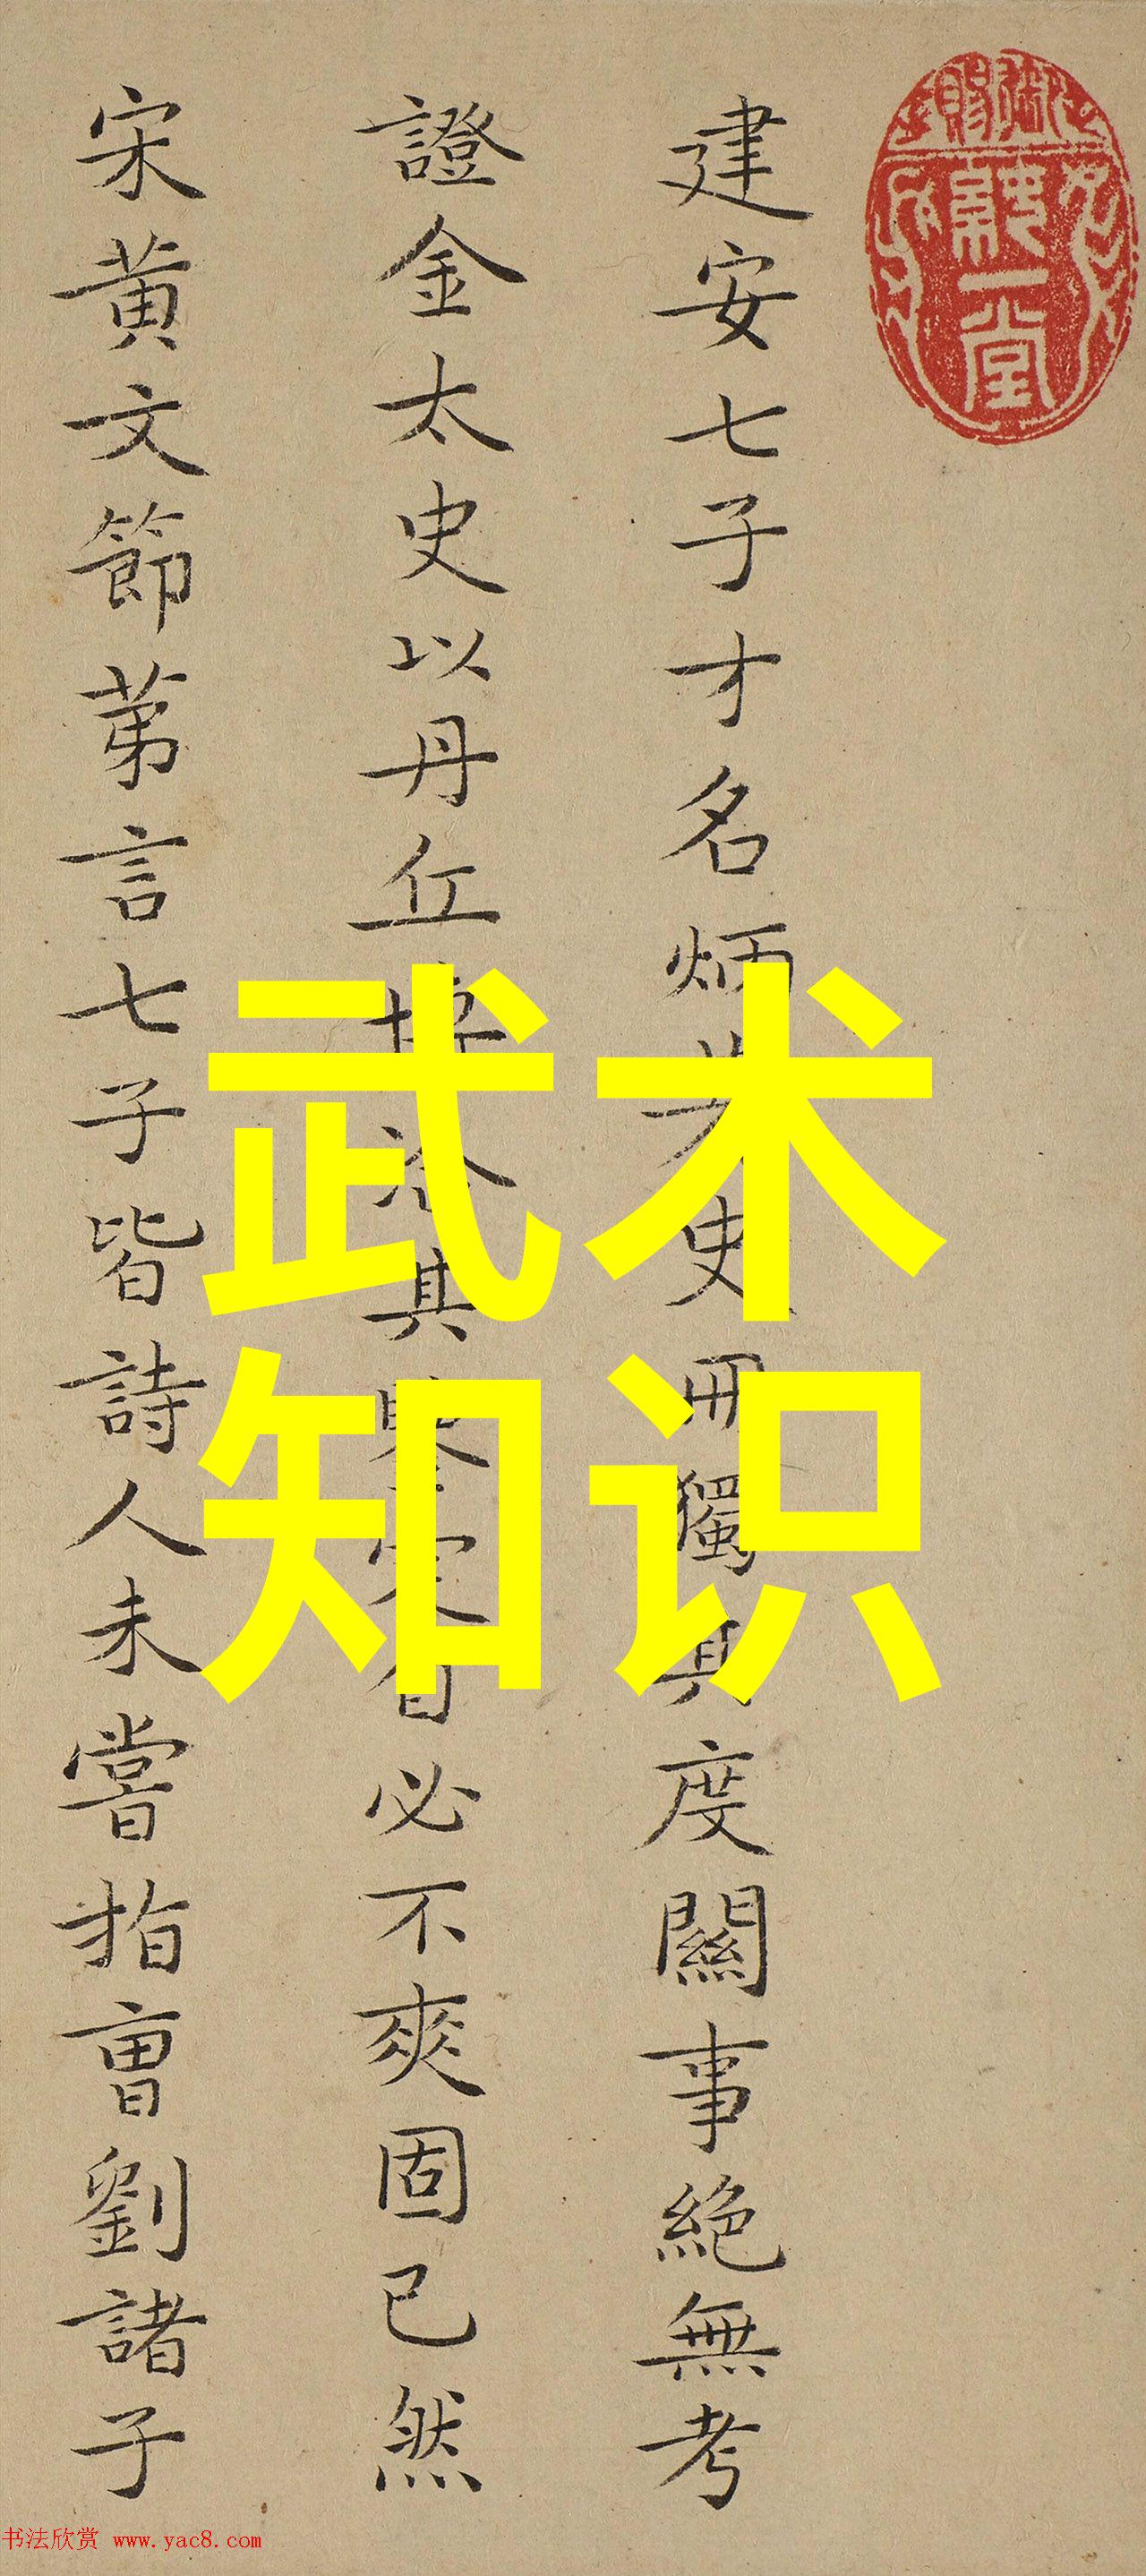 御賜
一堂
建安七子才名炳史冊獨其度關事絕無考
證金太史以丹丘博洽其自必不爽固已然
宋黃文節第言七子皆詩人未嘗指曹劉諸子
武术
知识
书法欣赏 www.yac8.com